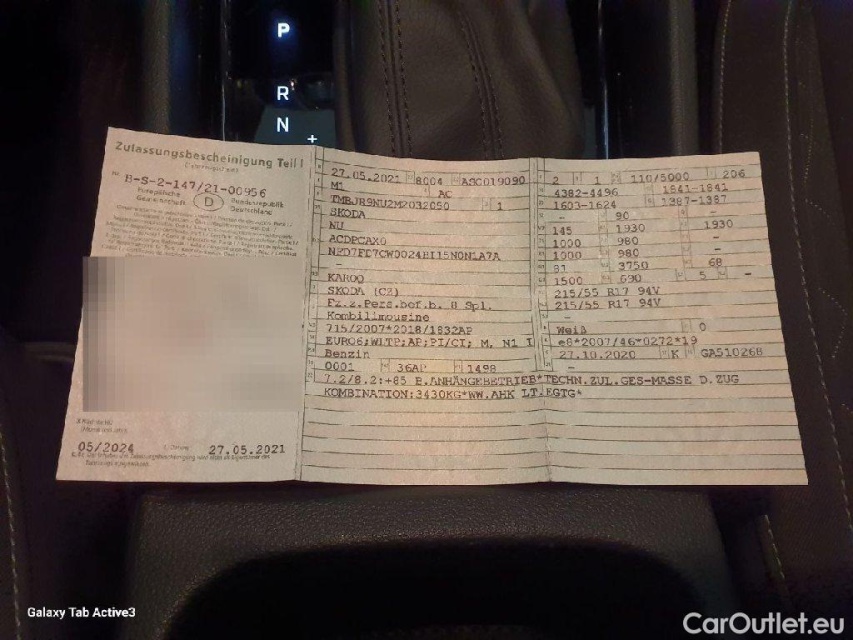 P
R
N
+
Zulassungsbescheinigung Teil I
B-S-2-147/21-00956
Europäische Gemeinschaft
D
Bundesrepublik Deutschland
05/2024
27.05.2021
27.05.2021 8004 ASC019090
M1 AC
TMBJR9NU2M2032050 1
SKODA
NU
ACDPCAX0
-
KAROQ
SKODA (CZ)
Fz.z.Pers.bef.b. 8 Spl.
Kombilimousine
715/2007*2018/1832AP
EURO6;WLTP;AP;PI/CI; M, N1 I
Benzin
0001 36AP 1498
7.2/8.2:+85 B.ANHÄNGEBETRIEB*TECHN.ZUL.GES-MASSE D.ZUG
KOMBINATION:3430KG*WW.AHK LT.EGTG*
2 1 110/5000 206
4382-4496 1841-1841
1603-1624 1387-1387
- 90 -
145 1930 1930
1000 980 -
1000 980 -
81 3750 68
1500 690 5 -
215/55 R17 94V
215/55 R17 94V
-
Weiß 0
e8*2007/46*0272*19
27.10.2020 K GA510268
Galaxy Tab Active3
CarOutlet.eu